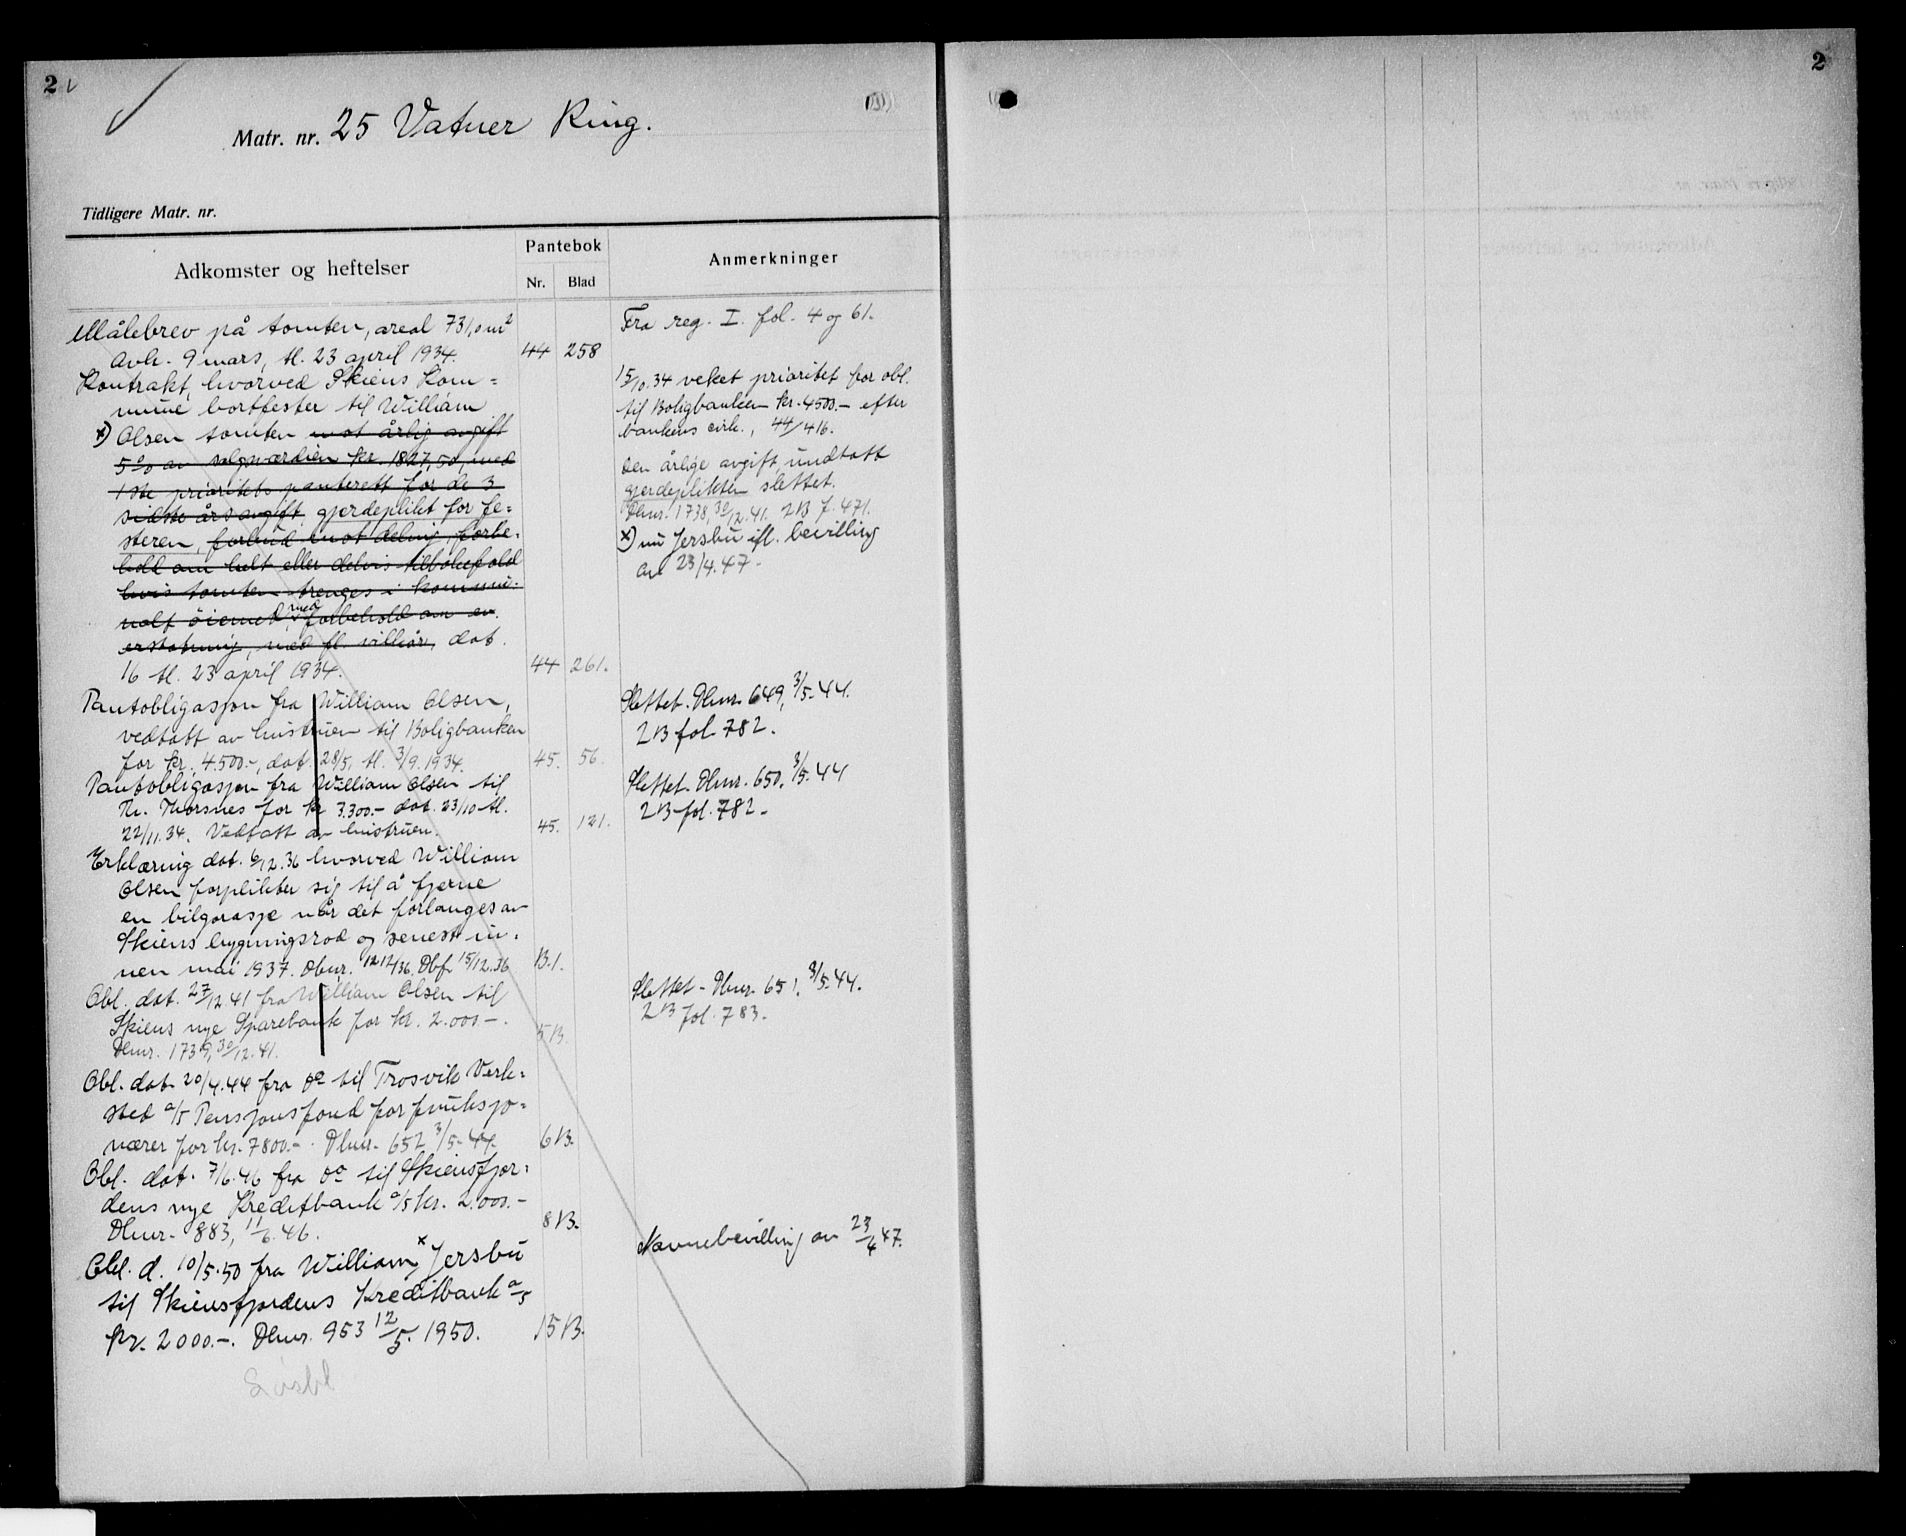 2
Matr. nr. 25 Vatner Ring.
Tidligere Matr. nr.
Adkomster og heftelser
Pantebok
Nr. Blad
Anmerkninger
Målebrev på tomten, areal 731,0 m²
avh. 9 mars, tl. 23 april 1934. 44 258
Kontrakt, hvorved Skiens Kom=
mune bortfester til William
x) Olsen tomten mot årlig avgift
5 % av salgsværdien kr. 1827,50, med
1ste prioritets panterett for de 3
sidste års avgift, gjerdeplikt for fe=
steren, forbud mot deling, forbe-
hold om helt eller delvis tilbakefald
hvis tomten trenges i kommu-
nalt öiemed, med forbehold om en
erstatning, med fl. villkår, dat.
16 tl. 23 april 1934. 44 261.
Pantobligasjon fra William Olsen,
vedtatt av hustruen til Boligbanken
for kr. 4.500.-, dat. 28/5, tl. 3/9.1934. 45. 56.
Pantobligasjon fra William Olsen til
Th. Thorsnes for kr 3.300.- dat. 23/10 tl.
22/11.34. Vedtatt av hustruen. 45. 121.
Erklæring dat. 6/12.36 hvorved William
Olsen forplikter sig til å fjerne
en bilgarasje når det forlanges av
Skiens bygningsråd og senest in-
nen mai 1937. Dbnr. 12 12/36. Dbf. 15/12.36 B.1.
Obl. dat. 27/12.41 fra William Olsen til
Skiens nye Sparebank for kr. 2.000-. 5B
Dbnr. 1739, 30/12.41.
Obl. dat. 20/4.44 fra do til Trosvik Verk=
sted a/s Pensjonsfond for funksjo=
nærer for kr. 7800.-. Dbnr. 652 3/5-44. 6B.
Obl. dat. 7/6.46 fra do til Skiensfjor=
dens nye Kreditbank a/s kr. 2.000.-
Dbnr. 883, 11/6.46. 8B.
Obl. d. 10/5.50 fra William x Jersbu
til Skiensfjordens Kreditbank a/s
kr. 2000.-. Dbnr. 953 12/5. 1950. 15B.
Fra reg. I. fol. 4 og 61.
15/10.34 veket prioritet for obl.
til Boligbanken kr. 4500.- efter
bankens cirk., 44/416.
Den årlige avgift, undtatt
gjerdeplikten slettet.
Dbnr. 1738, 30/12.41. 2B f. 471.
x) nu Jersbu ifl. bevilling
av 23/4.47.
Slettet. Dbnr. 649, 3/5-44.
2B fol. 782.
Slettet. Dbnr. 650, 3/5.44
2B fol. 782.
Slettet - Dbnr. 651, 3/5.44.
2B fol. 783.
Navnebevilling av 23/4 47.
2